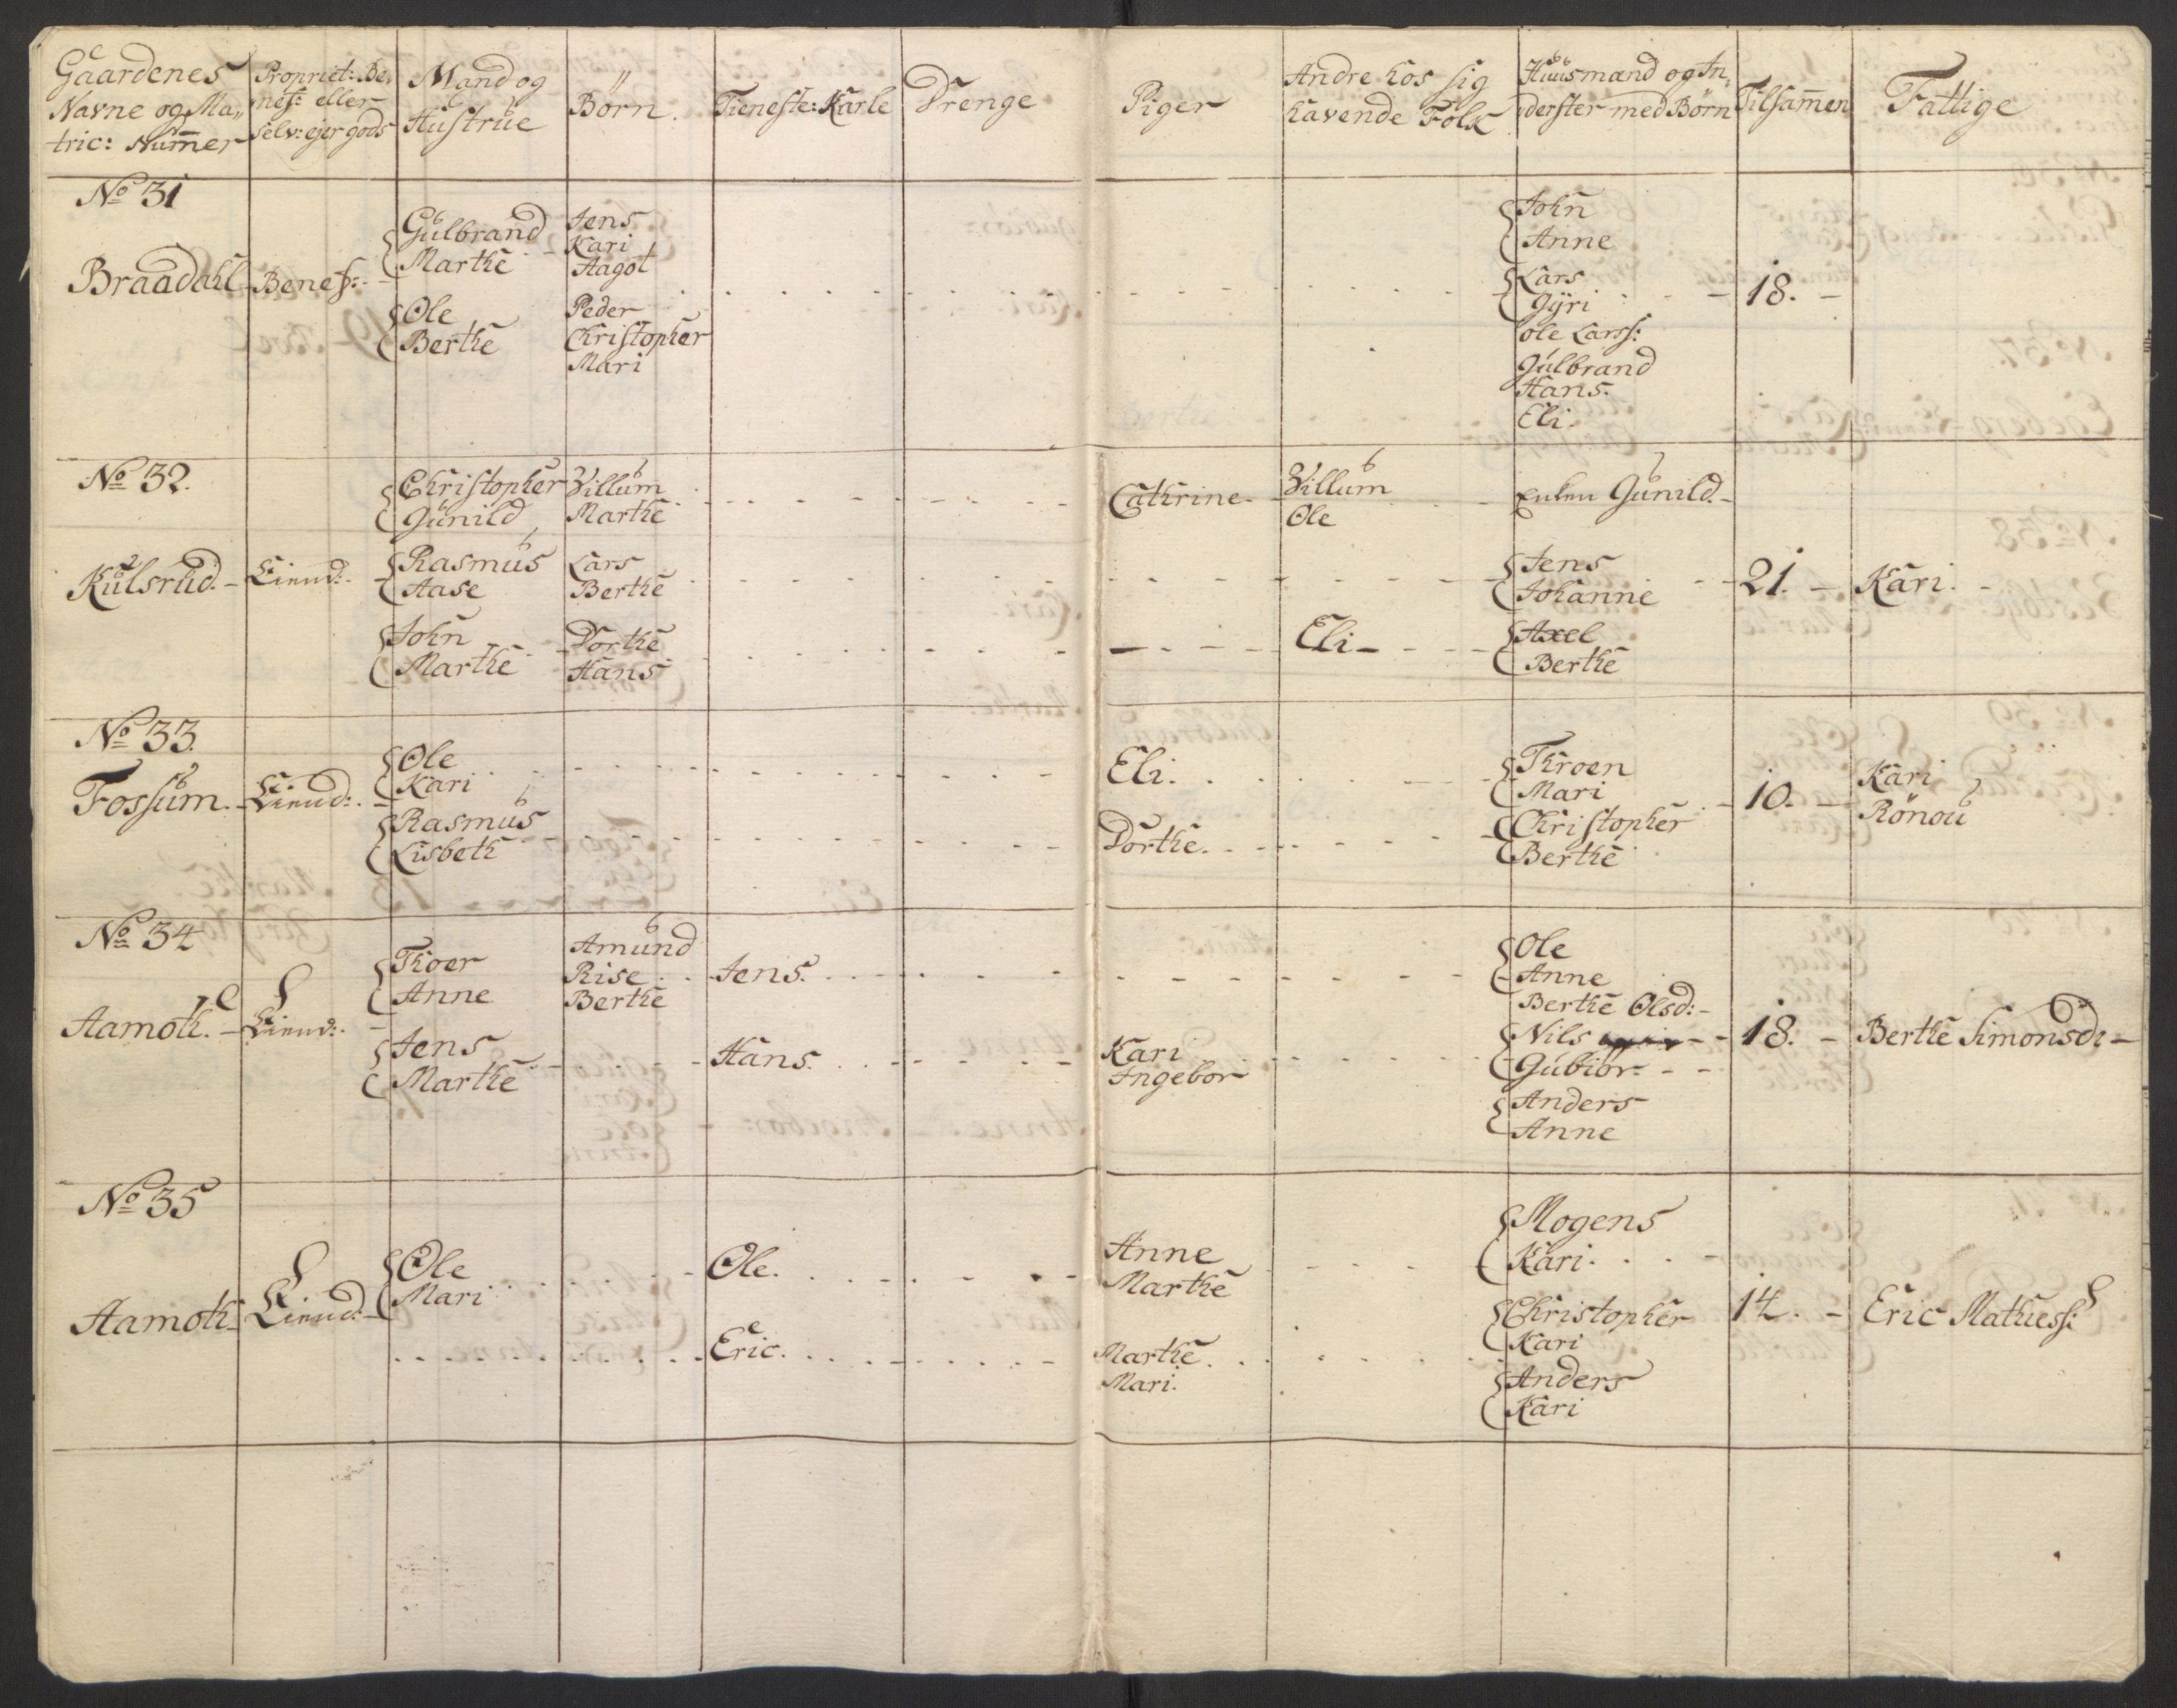 Gaardenes
Navne og Ma„
tric: Nummer
Propriet: Be„
nef: eller
Selv: ejer gods
Mand og
Hustrue
Börn.
Tieneste: Karle
Drenge
Piger
Andre hos sig
havende Folk
Huusmænd og In„
derster med Börn
Tilsammen
Fattige
No 31
Braadahl - Benef: -
Gulbrand
Marthe
Jens
Kari
Aagot
Ole
Berthe
Peder
Christopher
Mari
John
Anne
Lars
Gyri
Ole Larss:
Gulbrand
Hans.
Eli.
18. -
No 32.
Kulsrud. -
Christopher
Gunild
Villum
Marthe
Cathrine -
Villum
Ole
Enken Gunild. -
Rasmus
Aase
Lars
Berthe
Jens
Johanne
21. - Kari. -
John
Marthe
Dorthe
Hans
Eli -
Axel
Berthe
No 33.
Fossum. -
Ole
Kari
Eli.
Throen
Mari
10. -
Kari
Rönou
Rasmus
Lisbeth
Dorthe.
Christopher
Berthe
No 34
Aamoth. -
Thoer
Anne
Amund
Rise
Berthe
Jens.
Ole
Anne
Berthe Olsd: -
Jens
Marthe
Hans.
Kari
Ingebor
Nils
Gubiör -
Anders
Anne
18. - Berthe Simonsdr -
No 35
Aamoth -
Ole
Mari
Ole.
Anne
Marthe
Mogens
Kari.
Eric.
Marthe.
Mari.
Christopher
Kari
Anders
Kari
14. - Eric Mathiess: